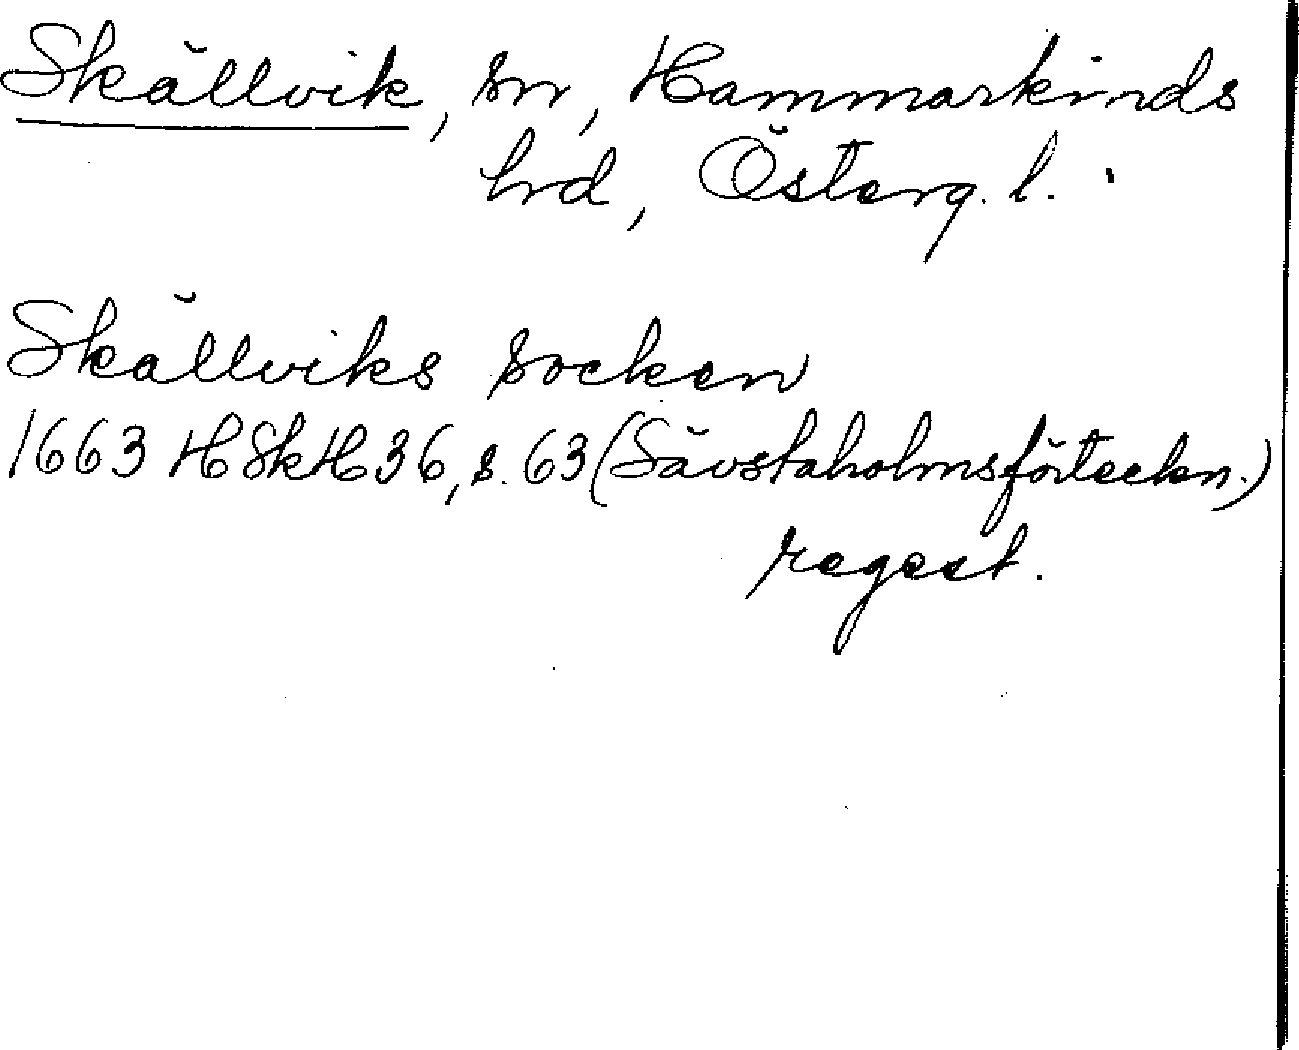 Skällvik, sn, Hammarkinds
hrd, Österg. l.
Skällviks socken
1663 HSkH 36, s. 63 (Sävstaholmsförteckn.)
regest.